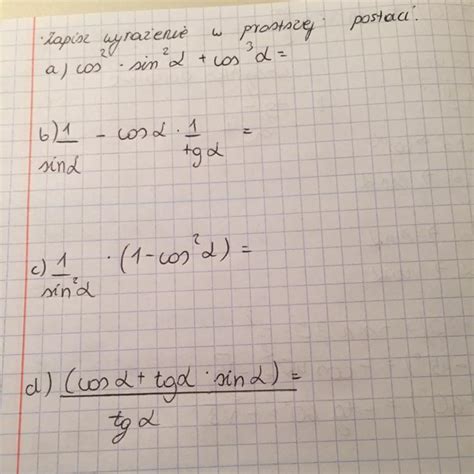 ·Zapisz wyrażenie w prostszej postaci.
a) cos² · sin²α + cos³α =
b) 1/sinα - cosα · 1/tgα =
c) 1/sin²α · (1-cos²α) =
d) (cosα + tgα · sinα)/tgα =